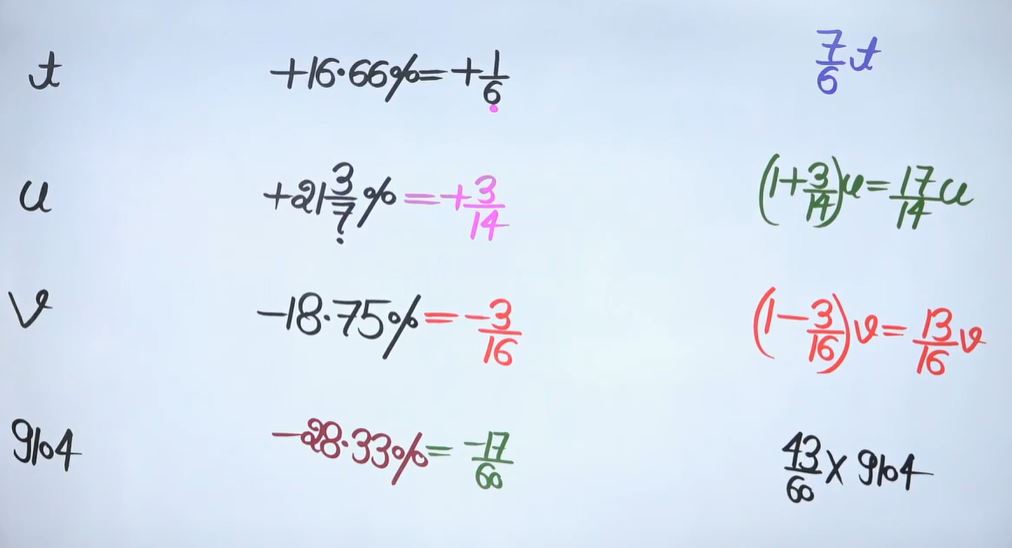 t +16.66% = +1/6 7/6 t
u +21 3/7 % = +3/14 (1+3/14)u = 17/14 u
v -18.75% = -3/16 (1-3/16)v = 13/16 v
9104 -28.33% = -17/60 43/60 × 9104